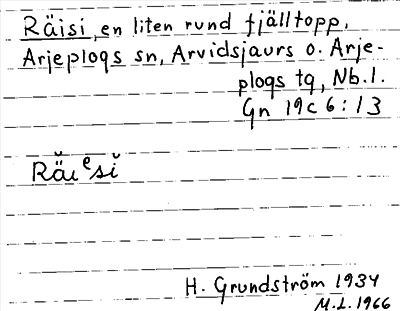 Räisi, en liten rund fjälltopp,
Arjeplogs sn, Arvidsjaurs o. Arje-
plogs tg, Nb. l.
Gn 19c 6:13
Rä̆ıᵉsĭ
H. Grundström 1934
M.L. 1966